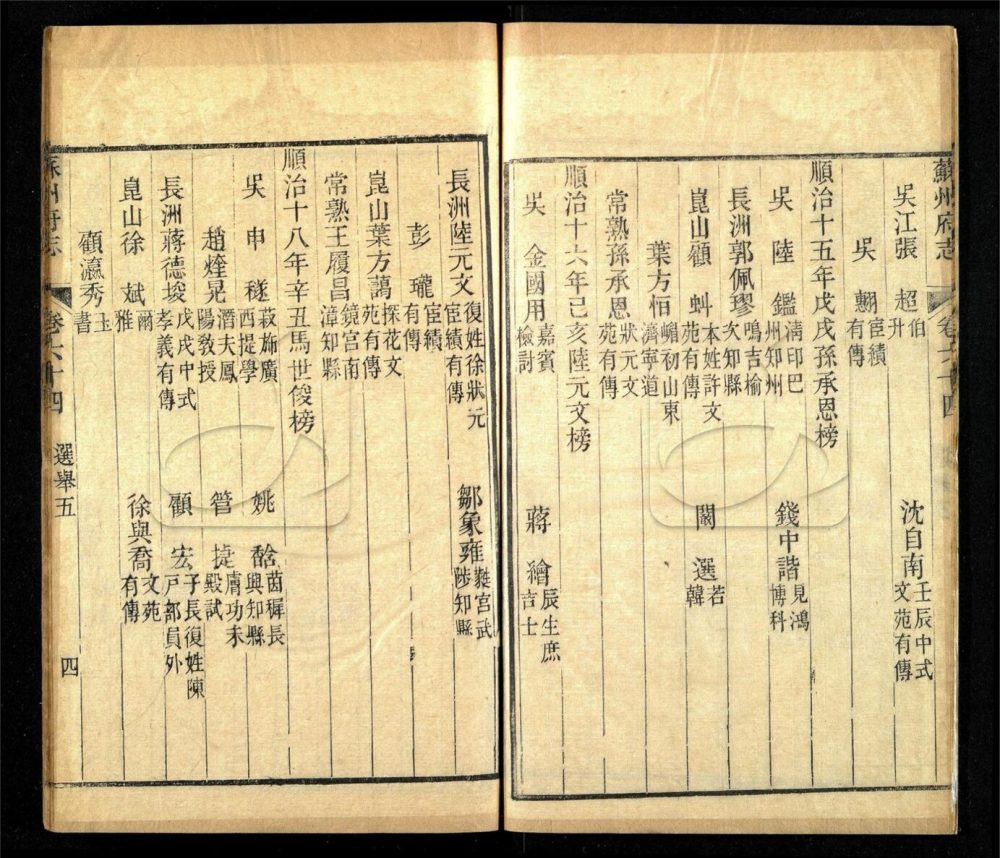 蘇州府志 卷六十四
吳江張超 伯升 沈自南 壬辰中式文苑有傳
吳翽 宦績有傳
順治十五年戊戌孫承恩榜
吳陸鑑 淸印巴州知州 錢中諧 見鴻博科
長洲郭佩璆 鳴吉榆次知縣
崑山顧蚪 本姓許文苑有傳 闞選 若韓
葉方恒 嵋初山東濟寧道
常熟孫承恩 狀元文苑有傳
順治十六年己亥陸元文榜
吳金國用 嘉賓檢討 蔣繪 辰生庶吉士
長洲陸元文 復姓徐狀元宦績有傳 鄒象雍 㲉宮武陟知縣
彭瓏 宦績有傳
崑山葉方藹 探花文苑有傳
常熟王履昌 鏡宮南漳知縣
順治十八年辛丑馬世俊榜
吳申穟 菽斾廣西提學 姚 茵穉長興知縣
趙煃晃 潛夫鳳陽敎授 管捷 膚功未殿試
長洲蔣德埈 戊戌中式孝義有傳 顧宏 子長復姓陳戸部員外
崑山徐斌 爾雅 徐與喬 文苑有傳
顧瀛秀 玉書
蘇州府志 卷六十四 選舉五 四